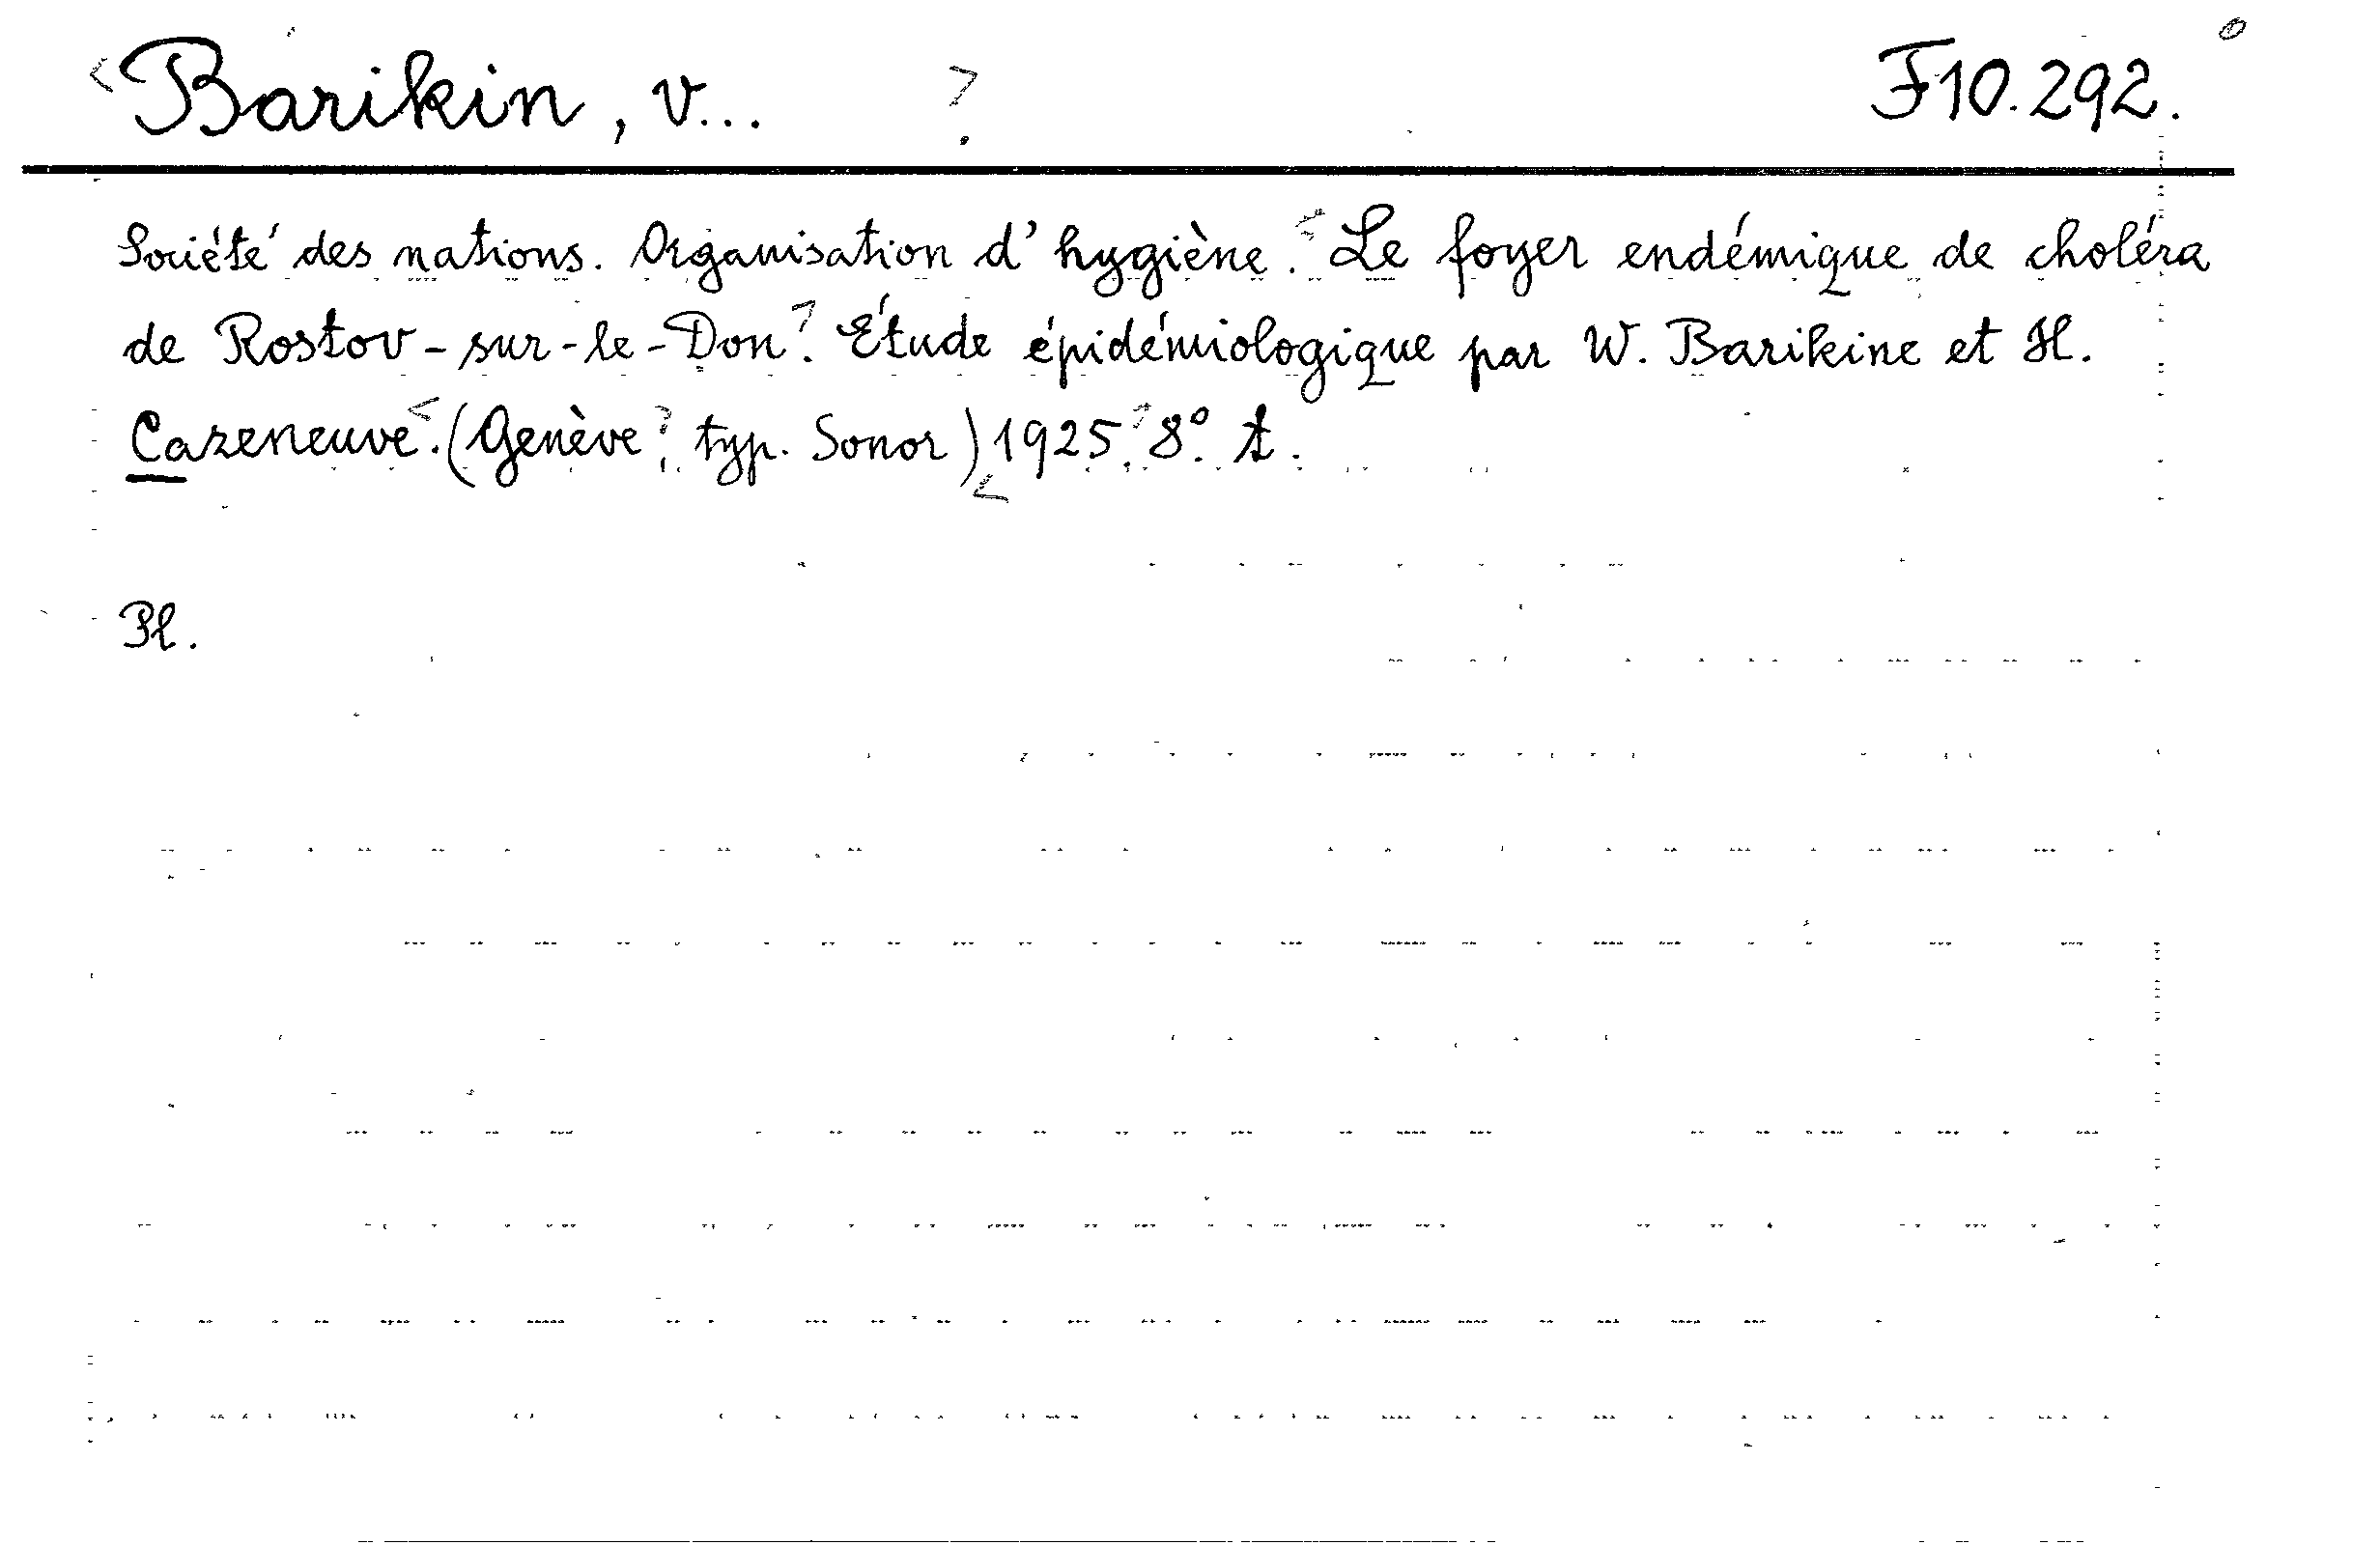 Barikin, v... F10.292.
Société des nations. Organisation d'hygiène. Le foyer endémique de choléra
de Rostov-sur-le-Don. Étude épidémiologique par W. Barikine et H.
Cazeneuve. (Genève, typ. Sonor) 1925. 8°. t.
Pl.